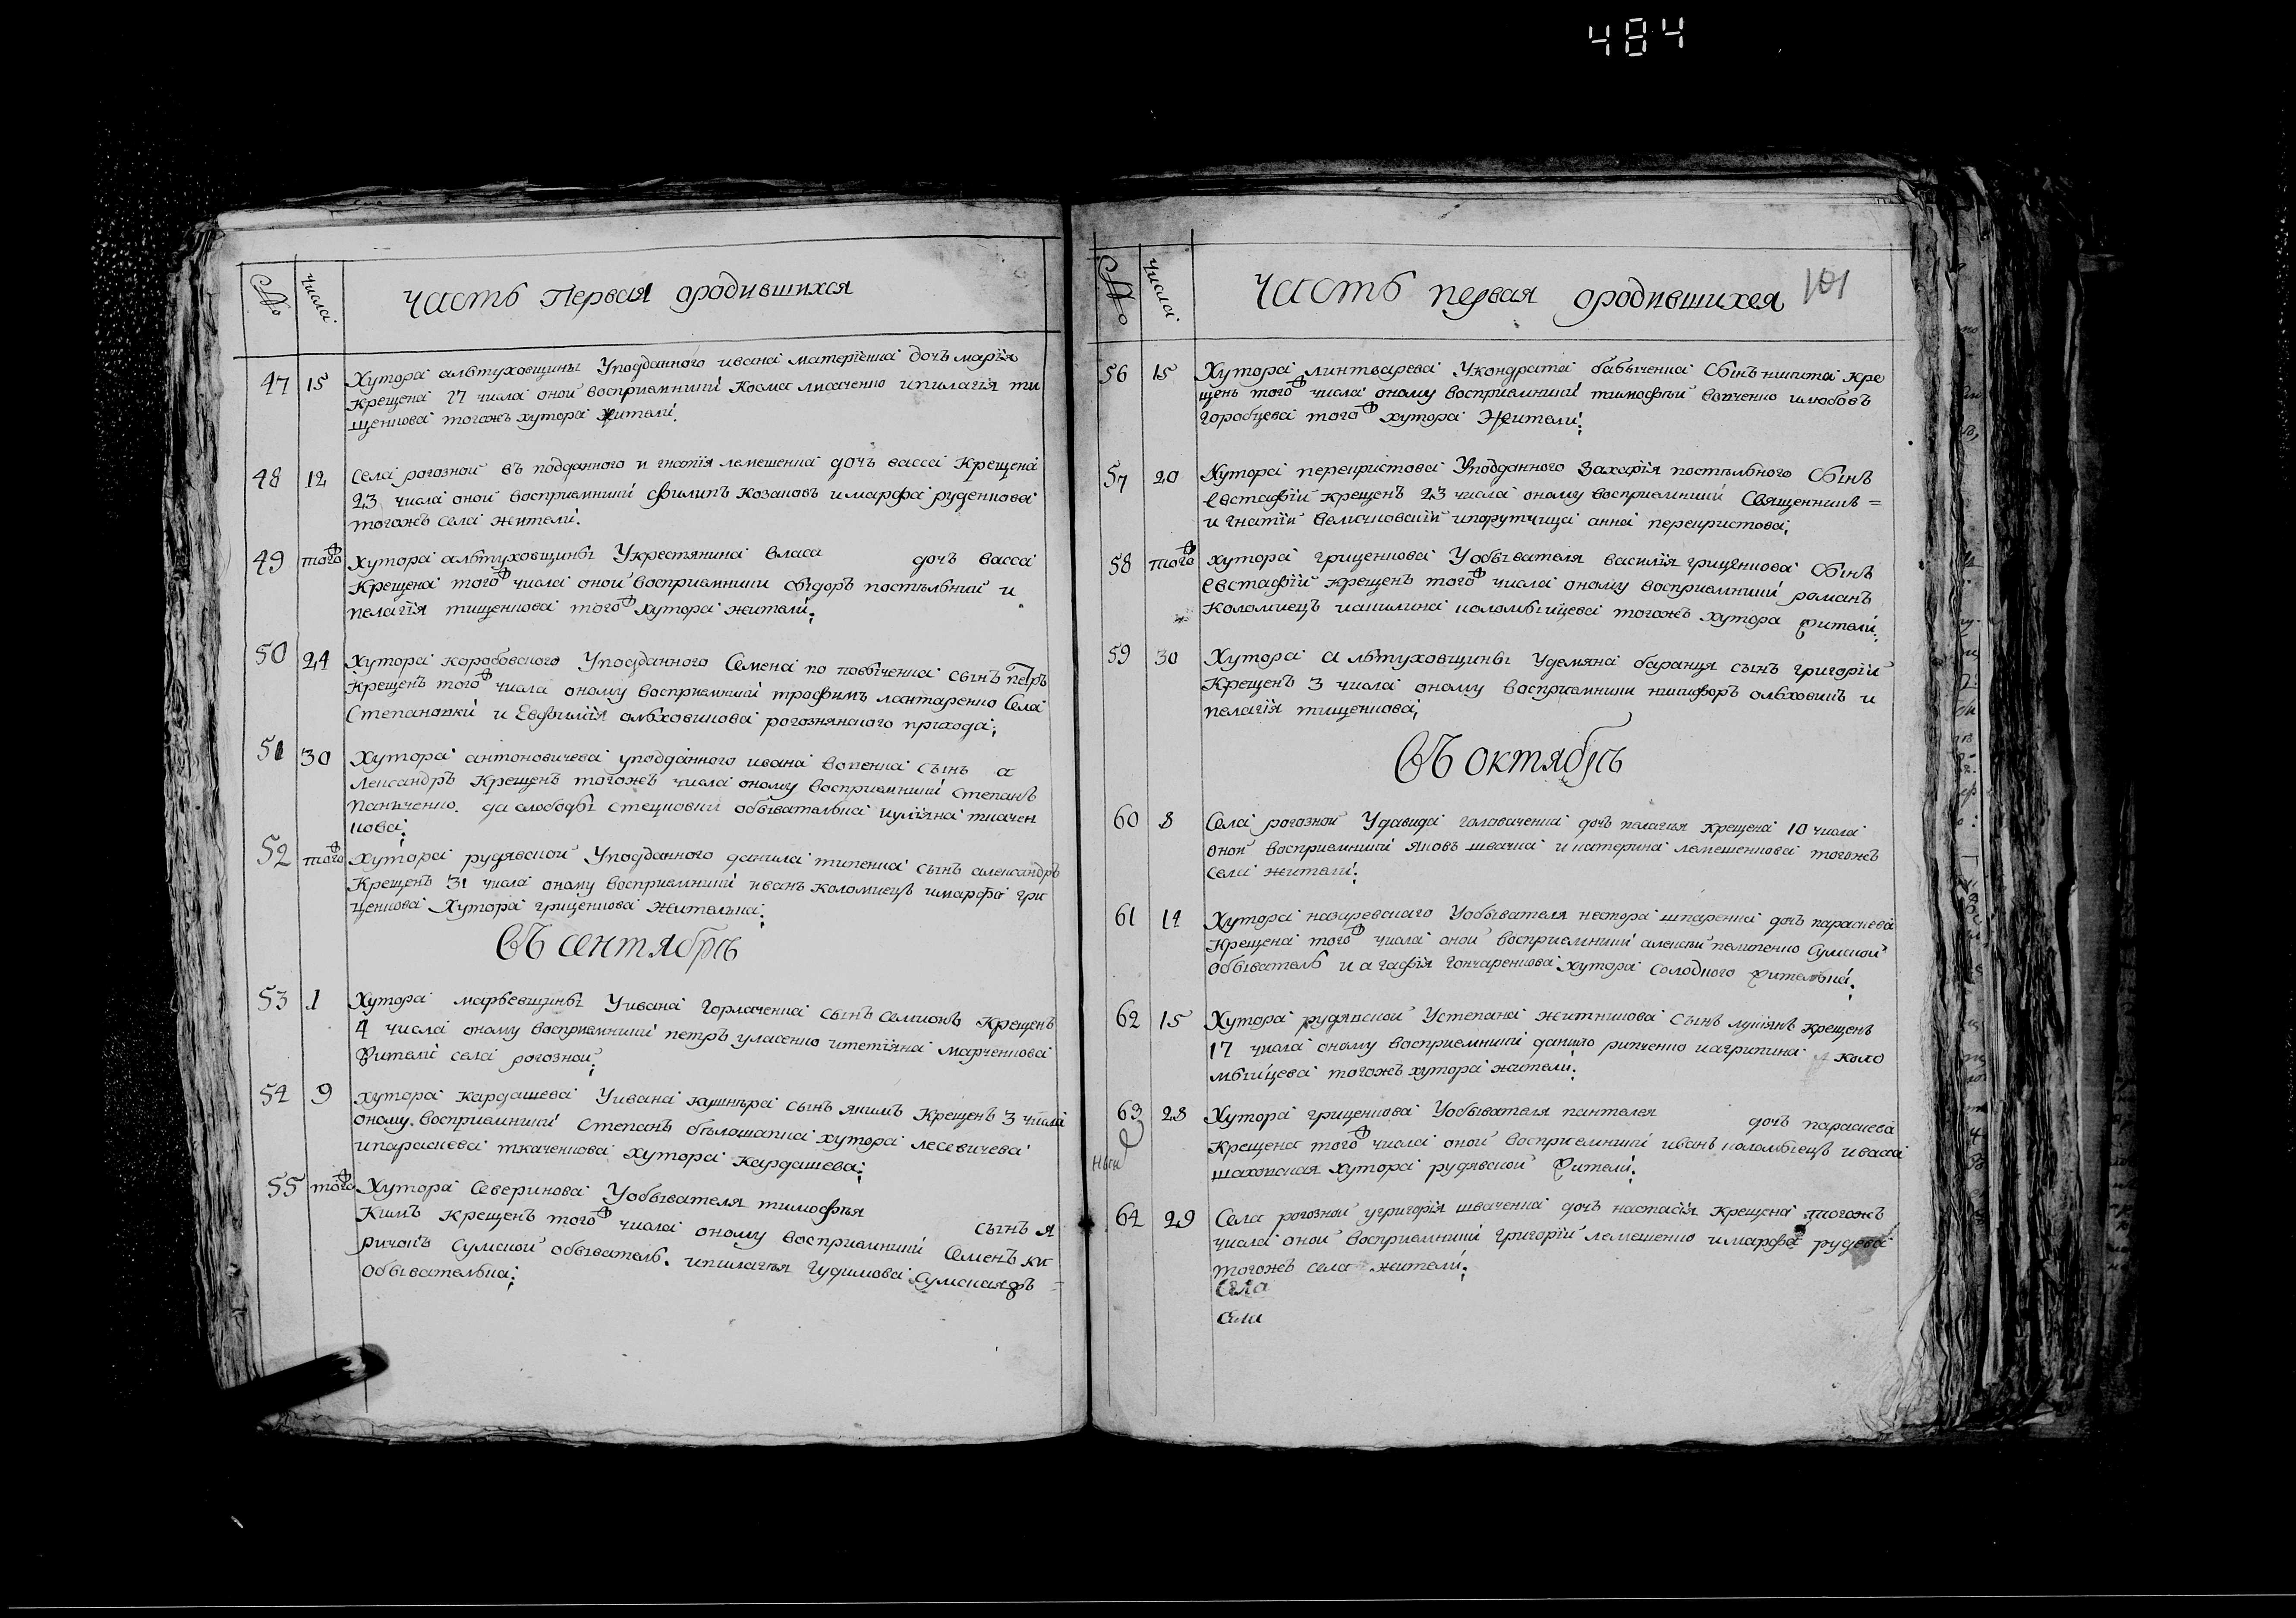 484
Число
Часть Первая ородившихся
47 15 Хутора алътуховщины Уподданного ивана дочъ марія
Крещена 27 числа оной восприемники Косма лисаченко ипилагія ти
щенкова тогожъ хутора жители.
48 12 Села рогозной въ подданного игнатія лемешенка дочъ васса Крещена
23 числа оной восприемники филипъ козаковъ имарфа руденкова
тогожъ села жители.
49 того Хутора алътуховщины Укрестянина власа дочъ васса
Крещена того числа оной восприемники фѣдоръ постѣльний и
пелагія тищенкова того хутора жители;
50 24 Хутора коробовского Уподданного Семена сынъ петръ
Крещенъ того числа оному восприемники трофимъ лантаренко Села
Степановки и Евфимія олъховикова рогознянского прихода;
51 30 Хутора антоновичева уподданного ивана сынъ а
лександръ Крещенъ тогожъ числа оному восприемники степанъ
панченко. да слободы стецковки обывателька иулияна ткачен
кова;
52 того Хутора рудявской Уподданного данила типенка сынъ александръ
Крещенъ 31 числа оному восприемники иванъ коломиецъ имарфа гри
ценкова Хутора гриценкова жителька;
Въ сентябрѣ
53 1 Хутора маръевщины Уивана Горлаченка сынъ семионъ Крещенъ
4 числа оному восприемники петръ уласенко итетіяна марченкова
жители села рогозной;
54 9 хутора Кардашева Уивана кушнѣра сынъ якимъ Крещенъ 3 числа
оному восприемники степанъ бѣлошапка хутора лесевичева
ипараскева ткаченкова хутора Кардашева;
55 того Хутора Северинова Уобывателя тимофѣя сынъ я
кимъ крещенъ того числа оному восприемники Семенъ ки
ричокъ сумской обыватель. ипилагѣя гудимова Сумская
обывателька;
Число
Часть первая ородившихся 101
56 15 Хутора линтварева Укондрата бабыченка Сынъ никита Кре
щенъ того числа оному восприемники тимофѣй илюбовъ
горобцева того хутора Жители;
57 20 Хутора перекристова Уподданного Захарія постѣльного Сынъ
Евстафій крещенъ 23 числа оному восприемники Священникъ =
игнатій величковскій ипорутчица анна перекристова;
58 того хутора гриценкова Уобывателя василія гриценкова Сынъ
Евстафій крещенъ того числа оному восприемники романъ
Коломиецъ иакилина коломыйцева тогожъ хутора жители;
59 30 Хутора алътуховщины Удемяна баранця сынъ григорій
Крещенъ 3 числа оному восприемники никифоръ олъховикъ и
пелагія тищенкова;
Въ октябрѣ
60 8 Села рогозной Удавида головаченка дочъ пелагия крещена 10 числа
оной восприемники яковъ швачка икатерина лемешенкова тогожъ
села жители;
61 14 Хутора назаревскаго Уобывателя нестора шпаренка дочъ параскева
Крещена того числа оной восприемники алексѣй Сумской
обыватель иагафія гончаренкова хутора солодкого жителька;
62 15 Хутора рудявской Устепана житникова сынъ лукіянъ крещенъ
17 числа оному восприемники данило рипченко иагрипина коло
мыйцева тогожъ хутора жители;
63 28 Хутора гриценкова Уобывателя пантелея дочъ параскева
Крещена того числа оной восприемники иванъ коломыецъ ивасса
хутора рудявской жители;
64 29 Села рогозной угригорія шваченка дочъ настасія крещена тогожъ
числа оной восприемники григорій лемешенко имарфа рудева
тогожъ села жители;
Села
Села